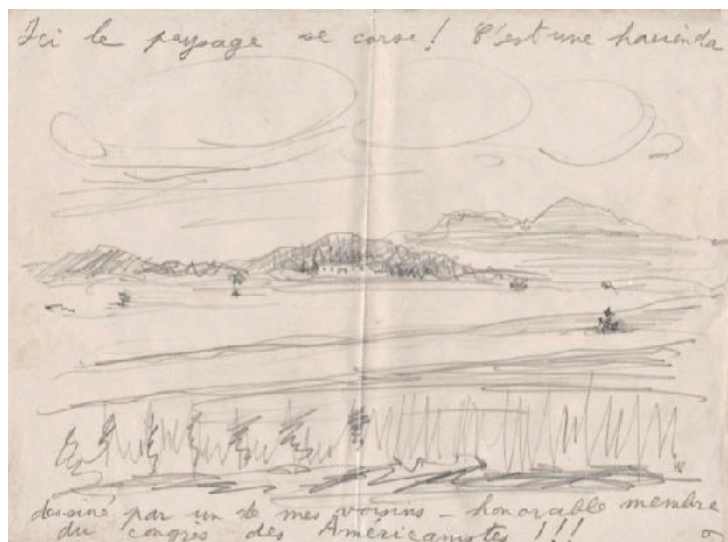 Ici le paysage se corse ! C'est une hacienda
dessiné par un de mes voisins – honorable membre
du congres des Américanistes !!!